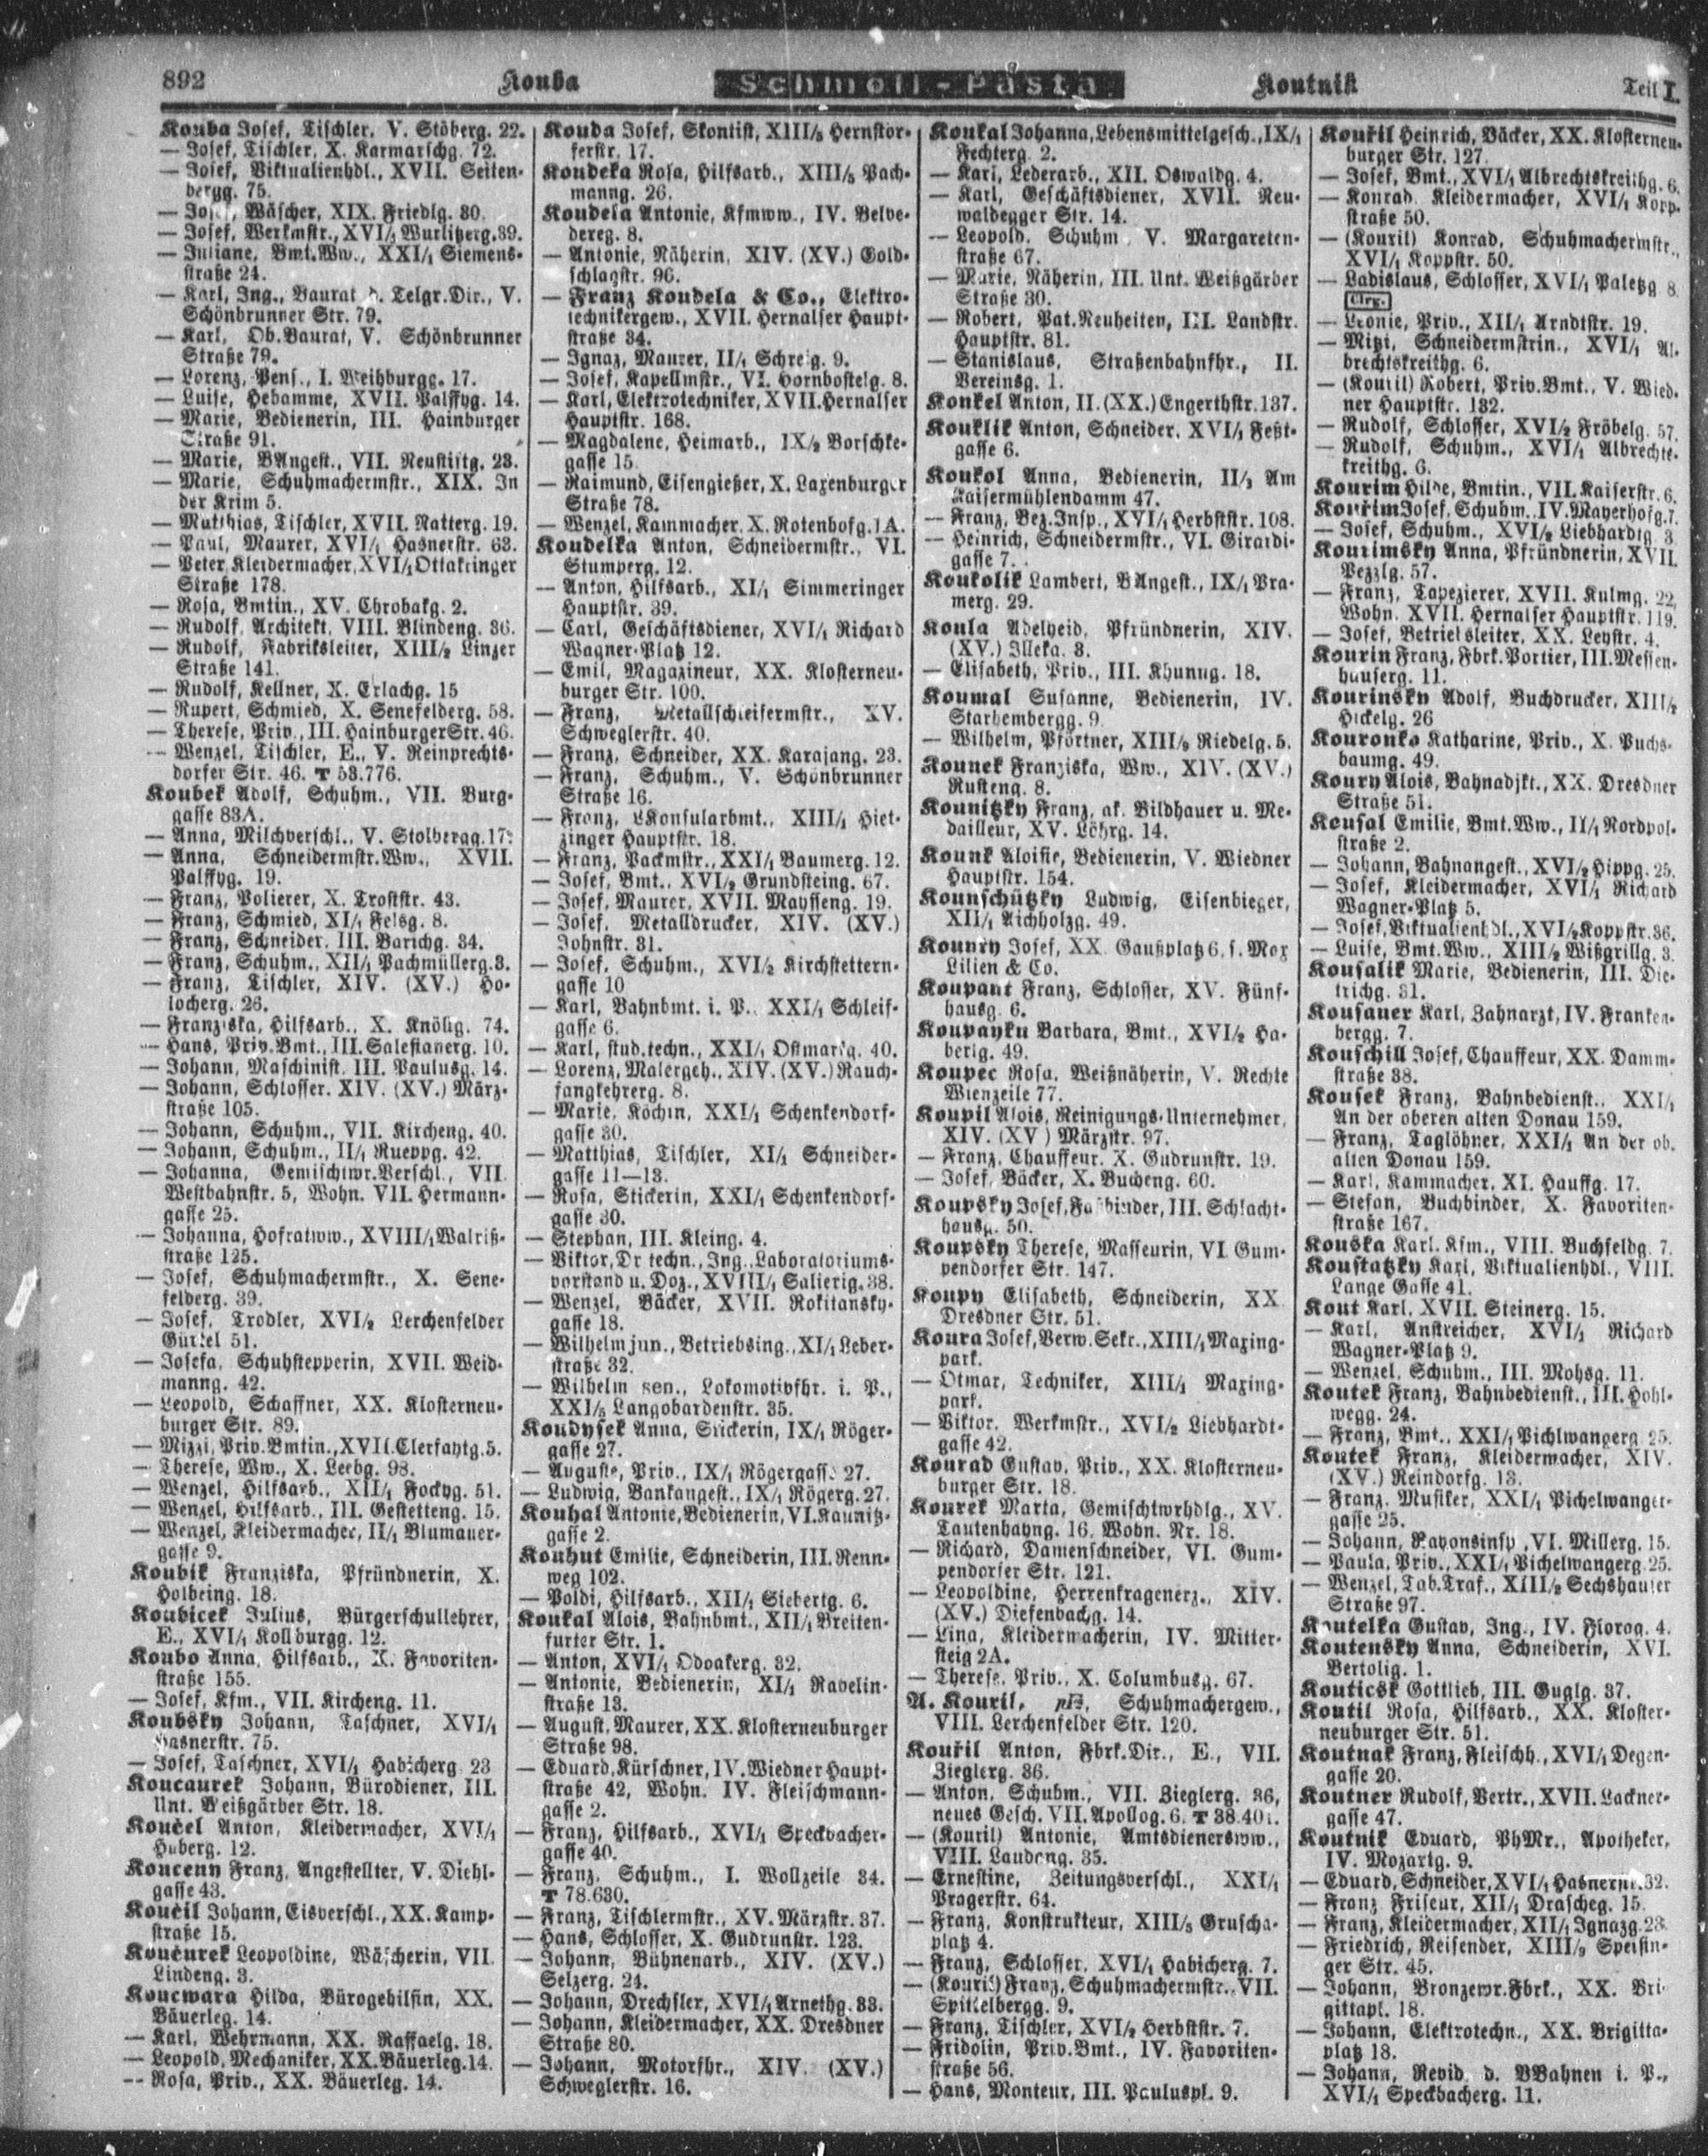 892 Kouba Schmoll-Pasta Koutnik Teil I.
Kouba Josef, Tischler, V. Stöberg. 22.
— Josef, Tischler, X. Karmarschg. 72.
— Josef, Viktualienhdl., XVII. Seiten-
bergg. 75.
— Josef, Wäscher, XIX. Friedlg. 30.
— Josef, Werkmstr., XVI/1 Wurlitzerg. 39.
— Juliane, Bmt.Ww., XXI/1 Siemens-
straße 24.
— Karl, Ing., Baurat d. Telgr.Dir., V.
Schönbrunner Str. 79.
— Karl, Ob.Baurat, V. Schönbrunner
Straße 79.
— Lorenz, Pens., I. Weihburgg. 17.
— Luise, Hebamme, XVII. Palffyg. 14.
— Marie, Bedienerin, III. Hainburger
Straße 91.
— Marie, BAngest., VII. Neustiftg. 23.
— Marie, Schuhmachermstr., XIX. In
der Krim 5.
— Matthias, Tischler, XVII. Natterg. 19.
— Paul, Maurer, XVI/1 Hasnerstr. 63.
— Peter, Kleidermacher, XVI/1 Ottakringer
Straße 178.
— Rosa, Bmtin., XV. Chrobakg. 2.
— Rudolf, Architekt, VIII. Blindeng. 36.
— Rudolf, Fabriksleiter, XIII/2 Linzer
Straße 141.
— Rudolf, Kellner, X. Erlachg. 15
— Rupert, Schmied, X. Senefelderg. 58.
— Therese, Priv., III. Hainburger Str. 46.
— Wenzel, Tischler, E., V. Reinprechts-
dorfer Str. 46. T 53.776.
Koubek Adolf, Schuhm., VII. Burg-
gasse 83A.
— Anna, Milchverschl., V. Stolbergg. 17.
— Anna, Schneidermstr.Ww., XVII.
Palffyg. 19.
— Franz, Polierer, X. Troststr. 43.
— Franz, Schmied, XI/1 Felsg. 8.
— Franz, Schneider, III. Barichg. 34.
— Franz, Schuhm., XII/1 Pachmüllerg. 3.
— Franz, Tischler, XIV. (XV.) Ho-
locherg. 26.
— Franziska, Hilfsarb., X. Knöllg. 74.
— Hans, Priv.Bmt., III. Salesianerg. 10.
— Johann, Maschinist, III. Paulusg. 14.
— Johann, Schlosser, XIV. (XV.) März-
straße 105.
— Johann, Schuhm., VII. Kircheng. 40.
— Johann, Schuhm., II/1 Rueppg. 42.
— Johanna, Gemischtwr.Verschl., VII.
Westbahnstr. 5, Wohn. VII. Hermann-
gasse 25.
— Johanna, Hofratww., XVIII/1 Walriß-
straße 125.
— Josef, Schuhmachermstr., X. Sene-
felderg. 39.
— Josef, Trodler, XVI/2 Lerchenfelder
Gürtel 51.
— Josefa, Schuhstepperin, XVII. Weid-
manng. 42.
— Leopold, Schaffner, XX. Klosterneu-
burger Str. 89.
— Mizzi, Priv.Bmtin., XVII. Clerfaytg. 5.
— Therese, Ww., X. Leebg. 98.
— Wenzel, Hilfsarb., XII/1 Fockyg. 51.
— Wenzel, Hilfsarb., III. Gestetteng. 15.
— Wenzel, Kleidermacher, II/1 Blumauer-
gasse 9.
Koubik Franziska, Pfründnerin, X.
Holbeing. 18.
Koubicek Julius, Bürgerschullehrer,
E., XVI/1 Kollburgg. 12.
Koubo Anna, Hilfsarb., X. Favoriten-
straße 155.
— Josef, Kfm., VII. Kircheng. 11.
Koubsky Johann, Taschner, XVI/1
Hasnerstr. 75.
— Josef, Taschner, XVI/1 Habicherg. 23
Koucaurek Johann, Bürodiener, III.
Unt. Weißgärber Str. 18.
Koučel Anton, Kleidermacher, XVI/1
Huberg. 12.
Koucenn Franz, Angestellter, V. Diehl-
gasse 43.
Koučil Johann, Eisverschl., XX. Kamp-
straße 15.
Koučurek Leopoldine, Wäscherin, VII.
Lindeng. 3.
Koucwara Hilda, Bürogehilfin, XX.
Bäuerleg. 14.
— Karl, Wehrmann, XX. Raffaelg. 18.
— Leopold, Mechaniker, XX. Bäuerleg. 14.
— Rosa, Priv., XX. Bäuerleg. 14.
Kouda Josef, Skontist, XIII/3 Hernstor-
ferstr. 17.
Koudeka Rosa, Hilfsarb., XIII/3 Pach-
manng. 26.
Koudela Antonie, Kfmww., IV. Belve-
dereg. 8.
— Antonie, Näherin, XIV. (XV.) Gold-
schlagstr. 96.
— Franz Koudela & Co., Elektro-
technikergew., XVII. Hernalser Haupt-
straße 34.
— Ignaz, Maurer, II/1 Schreig. 9.
— Josef, Kapellmstr., VI. Hornbostelg. 8.
— Karl, Elektrotechniker, XVII. Hernalser
Hauptstr. 168.
— Magdalene, Heimarb., IX/2 Borschke-
gasse 15
— Raimund, Eisengießer, X. Laxenburger
Straße 78.
— Wenzel, Kammacher, X. Rotenhofg. 1A.
Koudelka Anton, Schneidermstr., VI.
Stumperg. 12.
— Anton, Hilfsarb., XI/1 Simmeringer
Hauptstr. 39.
— Carl, Geschäftsdiener, XVI/1 Richard
Wagner-Platz 12.
— Emil, Magazineur, XX. Klosterneu-
burger Str. 100.
— Franz, Metallschleifermstr., XV.
Schweglerstr. 40.
— Franz, Schneider, XX. Karajang. 23.
— Franz, Schuhm., V. Schönbrunner
Straße 16.
— Franz, LKonsularbmt., XIII/1 Hiet-
zinger Hauptstr. 18.
— Franz, Packmstr., XXI/1 Baumerg. 12.
— Josef, Bmt., XVI/2 Grundsteing. 67.
— Josef, Maurer, XVII. Mayßeng. 19.
— Josef, Metalldrucker, XIV. (XV.)
Johnstr. 31.
— Josef, Schuhm., XVI/2 Kirchstettern-
gasse 10
— Karl, Bahnbmt. i. P., XXI/1 Schleif-
gasse 6.
— Karl, stud.techn., XXI/1 Ostmarkg. 40.
— Lorenz, Malergeh., XIV. (XV.) Rauch-
fangkehrerg. 8.
— Marie, Köchin, XXI/1 Schenkendorf-
gasse 30.
— Matthias, Tischler, XI/1 Schneider-
gasse 11—13.
— Rosa, Stickerin, XXI/1 Schenkendorf-
gasse 30.
— Stephan, III. Kleing. 4.
— Viktor, Dr techn., Ing., Laboratoriums-
vorstand u. Doz., XVIII/1 Salierig. 38.
— Wenzel, Bäcker, XVII. Rokitansky-
gasse 18.
— Wilhelm jun., Betriebsing., XI/1 Leber-
straße 32.
— Wilhelm sen., Lokomotivfhr. i. P.,
XXI/3 Langobardenstr. 35.
Koudysek Anna, Stickerin, IX/1 Röger-
gasse 27.
— Auguste, Priv., IX/1 Rögergasse 27.
— Ludwig, Bankangest., IX/1 Rögerg. 27.
Kouhal Antonie, Bedienerin, VI. Kaunitz-
gasse 2.
Kouhut Emilie, Schneiderin, III. Renn-
weg 102.
— Poldi, Hilfsarb., XII/1 Siebertg. 6.
Koukal Alois, Bahnbmt., XII/1 Breiten-
furter Str. 1.
— Anton, XVI/1 Odoakerg. 32.
— Antonie, Bedienerin, XI/1 Ravelin-
straße 13.
— August, Maurer, XX. Klosterneuburger
Straße 98.
— Eduard, Kürschner, IV. Wiedner Haupt-
straße 42, Wohn. IV. Fleischmann-
gasse 2.
— Franz, Hilfsarb., XVI/1 Speckbacher-
gasse 40.
— Franz, Schuhm., I. Wollzeile 34.
T 78.630.
— Franz, Tischlermstr., XV. Märzstr. 37.
— Hans, Schlosser, X. Gudrunstr. 123.
— Johann, Bühnenarb., XIV. (XV.)
Selzerg. 24.
— Johann, Drechsler, XVI/1 Arnethg. 83.
— Johann, Kleidermacher, XX. Dresdner
Straße 80.
— Johann, Motorfhr., XIV. (XV.)
Schweglerstr. 16.
Koukal Johanna, Lebensmittelgesch., IX/1
Fechterg. 2.
— Karl, Lederarb., XII. Oswaldg. 4.
— Karl, Geschäftsdiener, XVII. Neu-
waldegger Str. 14.
— Leopold, Schuhm., V. Margareten-
straße 67.
— Marie, Näherin, III. Unt. Weißgärber
Straße 30.
— Robert, Pat.Neuheiten, III. Landstr.
Hauptstr. 81.
— Stanislaus, Straßenbahnfhr., II.
Vereinsg. 1.
Koukel Anton, II. (XX.) Engerthstr. 137.
Kouklik Anton, Schneider, XVI/1 Feßt-
gasse 6.
Koukol Anna, Bedienerin, II/3 Am
Kaisermühlendamm 47.
— Franz, Bez.Insp., XVI/1 Herbststr. 108.
— Heinrich, Schneidermstr., VI. Girardi-
gasse 7.
Koukolik Lambert, BAngest., IX/1 Pra-
merg. 29.
Koula Adelheid, Pfründnerin, XIV.
(XV.) Illeka. 8.
— Elisabeth, Priv., III. Khunng. 18.
Koumal Susanne, Bedienerin, IV.
Starhembergg. 9.
— Wilhelm, Pförtner, XIII/9 Riedelg. 5.
Kounek Franziska, Ww., XIV. (XV.)
Rusteng. 8.
Kounitzky Franz, ak. Bildhauer u. Me-
dailleur, XV. Löhrg. 14.
Kounk Aloisie, Bedienerin, V. Wiedner
Hauptstr. 154.
Kounschützky Ludwig, Eisenbieger,
XII/1 Aichholzg. 49.
Kounry Josef, XX. Gaußplatz 6, s. Max
Lilien & Co.
Koupant Franz, Schlosser, XV. Fünf-
hausg. 6.
Koupayku Barbara, Bmt., XVI/2 Ha-
berlg. 49.
Koupec Rosa, Weißnäherin, V. Rechte
Wienzeile 77.
Koupil Alois, Reinigungs-Unternehmer,
XIV. (XV.) Märzstr. 97.
— Franz, Chauffeur, X. Gudrunstr. 19.
— Josef, Bäcker, X. Bucheng. 60.
Koupsky Josef, Faßbinder, III. Schlacht-
hausg. 50.
Koupsky Therese, Masseurin, VI. Gum-
pendorfer Str. 147.
Koupy Elisabeth, Schneiderin, XX
Dresdner Str. 51.
Koura Josef, Verw.Sekr., XIII/1 Maxing-
park.
— Otmar, Techniker, XIII/1 Maxing-
park.
— Viktor, Werkmstr., XVI/2 Liebhardt-
gasse 42.
Kourad Gustav, Priv., XX. Klosterneu-
burger Str. 18.
Kourek Marta, Gemischtwrhdlg., XV.
Tautenhayng. 16, Wohn. Nr. 18.
— Richard, Damenschneider, VI. Gum-
pendorfer Str. 121.
— Leopoldine, Herrenkragenerz., XIV.
(XV.) Diefenbachg. 14.
— Lina, Kleidermacherin, IV. Mitter-
steig 2A.
— Therese, Priv., X. Columbusg. 67.
A. Kouril, Schuhmachergew.,
VIII. Lerchenfelder Str. 120.
Kouřil Anton, Fbrk.Dir., E., VII.
Zieglerg. 36.
— Anton, Schuhm., VII. Zieglerg. 36,
neues Gesch. VII. Apollog. 6. T
— (Kouril) Antonie, Amtsdienersww.,
VIII. Laudong. 35.
— Ernestine, Zeitungsverschl., XXI/1
Pragerstr. 64.
— Franz, Konstrukteur, XIII/3 Gruscha-
platz 4.
— Franz, Schlosser, XVI/1 Habicherg. 7.
— (Kouril) Franz, Schuhmachermstr., VII.
Spittelbergg. 9.
— Franz, Tischler, XVI/2 Herbststr. 7.
— Fridolin, Priv.Bmt., IV. Favoriten-
straße 56.
— Hans, Monteur, III. Pauluspl. 9.
Kouřil Heinrich, Bäcker, XX. Klosterneu-
burger Str. 127.
— Josef, Bmt., XVI/1 Albrechtskreithg. 6.
— Konrad, Kleidermacher, XVI/1 Kopp-
straße 50.
— (Kouril) Konrad, Schuhmachermstr.,
XVI/1 Koppstr. 50.
— Ladislaus, Schlosser, XVI/1 Paletzg. 8.
— Leonie, Priv., XII/1 Arndtstr. 19.
— Mitzi, Schneidermstrin., XVI/1 Al-
brechtskreithg. 6.
— (Kouril) Robert, Priv.Bmt., V. Wied-
ner Hauptstr. 132.
— Rudolf, Schlosser, XVI/2 Fröbelg. 57.
— Rudolf, Schuhm., XVI/1 Albrechts-
kreithg. 6.
Kourim Hilde, Bmtin., VII. Kaiserstr. 6.
Kouřim Josef, Schuhm., IV. Mayerhofg. 7.
— Josef, Schuhm., XVI/2 Liebhardtg. 3.
Kourimsky Anna, Pfründnerin, XVII.
Pezzlg. 57.
— Franz, Tapezierer, XVII. Kulmg. 22,
Wohn. XVII. Hernalser Hauptstr. 119.
— Josef, Betriebsleiter, XX. Leystr. 4.
Kourin Franz, Fbrk.Portier, III. Messen-
hauserg. 11.
Kourinsky Adolf, Buchdrucker, XIII/2
Hickelg. 26
Kouronko Katharine, Priv., X. Puchs-
baumg. 49.
Koury Alois, Bahnadjkt., XX. Dresdner
Straße 51.
Kousal Emilie, Bmt.Ww., II/1 Nordpol-
straße 2.
— Johann, Bahnangest., XVI/2 Hippg. 25.
— Josef, Kleidermacher, XVI/1 Richard
Wagner-Platz 5.
— Josef, Viktualienhdl., XVI/2 Koppstr. 36.
— Luise, Bmt.Ww., XIII/2 Wißgrillg. 3.
Kousalik Marie, Bedienerin, III. Die-
trichg. 31.
Kousauer Karl, Zahnarzt, IV. Franken-
bergg. 7.
Kouschill Josef, Chauffeur, XX. Damm-
straße 38.
Kousek Franz, Bahnbedienst., XXI/1
An der oberen alten Donau 159.
— Franz, Taglöhner, XXI/1 An der ob.
alten Donau 159.
— Karl, Kammacher, XI. Hauffg. 17.
— Stefan, Buchbinder, X. Favoriten-
straße 167.
Kouska Karl, Kfm., VIII. Buchfeldg. 7.
Koustatzky Karl, Viktualienhdl., VIII.
Lange Gasse 41.
Kout Karl, XVII. Steinerg. 15.
— Karl, Anstreicher, XVI/1 Richard
Wagner-Platz 9.
— Wenzel, Schuhm., III. Mohsg. 11.
Koutek Franz, Bahnbedienst., III. Hohl-
wegg. 24.
— Franz, Bmt., XXI/1 Pichlwangerg. 25.
Koutek Franz, Kleidermacher, XIV.
(XV.) Reindorfg. 13.
— Franz, Musiker, XXI/1 Pichelwanger-
gasse 25.
— Johann, Rayonsinsp., VI. Millerg. 15.
— Paula, Priv., XXI/1 Pichelwangerg. 25.
— Wenzel, Tab.Traf., XIII/2 Sechshauser
Straße 97.
Koutelka Gustav, Ing., IV. Florag. 4.
Koutensky Anna, Schneiderin, XVI.
Bertolig. 1.
Kouticsk Gottlieb, III. Guglg. 37.
Koutil Rosa, Hilfsarb., XX. Kloster-
neuburger Str. 51.
Koutnak Franz, Fleischh., XVI/1 Degen-
gasse 20.
Koutner Rudolf, Vertr., XVII. Lackner-
gasse 47.
Koutnik Eduard, PhMr., Apotheker,
IV. Mozartg. 9.
— Eduard, Schneider, XVI/1 Hasnerstr. 32.
— Franz Friseur, XII/1 Drascheg. 15.
— Franz, Kleidermacher, XII/1 Ignazg. 23.
— Friedrich, Reisender, XIII/9 Speisin-
ger Str. 45.
— Johann, Bronzewr.Fbrk., XX. Bri-
gittapl. 18.
— Johann, Elektrotechn., XX. Brigitta-
platz 18.
— Johann, Revid. d. BBahnen i. P.,
XVI/1 Speckbacherg. 11.